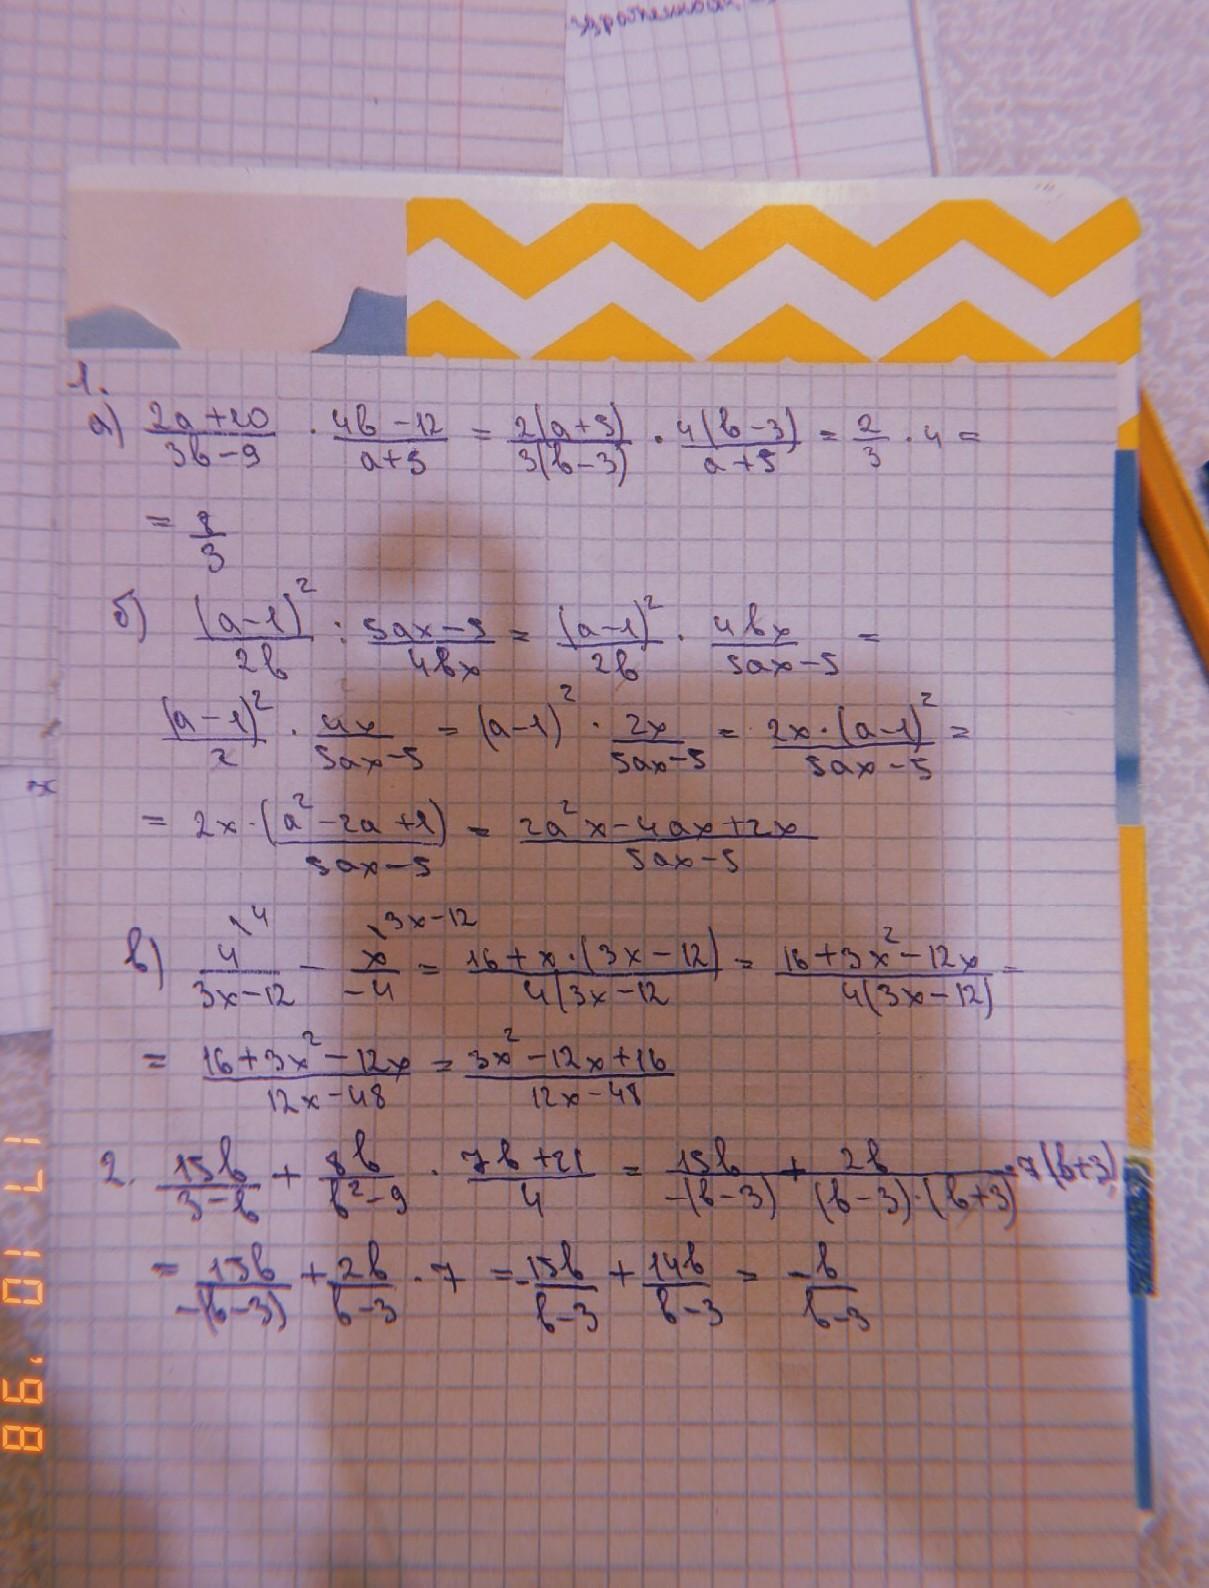 1.
а) (2a+10)/(3b-9) · (4b-12)/(a+5) = 2(a+5)/3(b-3) · 4(b-3)/(a+5) = 2/3 · 4 =
= 8/3
б) (a-1)²/2b : (5ax-5)/4bx = (a-1)²/2b · 4bx/(5ax-5) =
(a-1)²/2 · 4x/(5ax-5) = (a-1)² · 2x/(5ax-5) = 2x·(a-1)²/(5ax-5) =
= 2x·(a²-2a+1)/(5ax-5) = (2a²x-4ax+2x)/(5ax-5)
в) 4\4/(3x-12) - x\3x-12/-4 = 16+x·(3x-12)/4(3x-12 = 16+3x²-12x/4(3x-12) =
= (16+3x²-12x)/(12x-48) = (3x²-12x+16)/(12x-48)
2. 15b/(3-b) + 8b/(b²-9) · (7b+21)/4 = 15b/-(b-3) + 2b/(b-3)·(b+3) · 7(b+3)
= 15b/-(b-3) + 2b/(b-3) · 7 = -15b/(b-3) + 14b/(b-3) = -b/(b-3)
17 10 '98